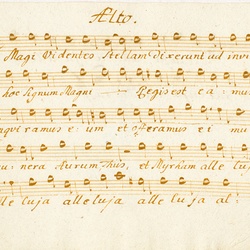 Alto.
Magi Videntes Stellam Dixerunt ad invi
hoc Signum Magni Regis est ea: mus
inqviramus e: um et offeramus ei mu
nera Aurum Thus, et Myrham alle lu
alle luja alleluja alleluja al: